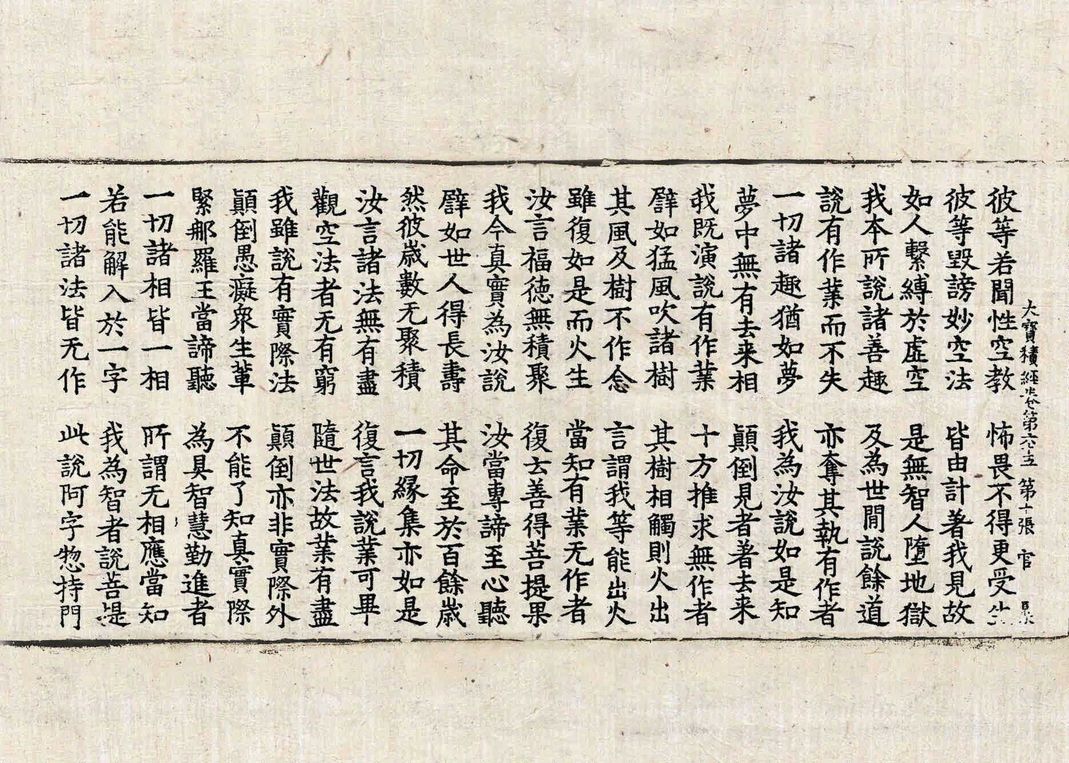 大寶積經卷第六十五 第十張 官
彼等若聞性空教 怖畏不得更受生
彼等毀謗妙空法 皆由計著我見故
如人繫縛於虛空 是無智人墮地獄
我本所說諸善趣 及為世間說餘道
說有作業而不失 亦奪其執有作者
一切諸趣猶如夢 我為汝說如是知
夢中無有去来相 顛倒見者著去来
我既演說有作業 十方推求無作者
譬如猛風吹諸樹 其樹相觸則火出
其風及樹不作念 言謂我等能出火
雖復如是而火生 當知有業无作者
汝言福德無積聚 復云善得菩提果
我今真實為汝說 汝當專諦至心聽
譬如世人得長壽 其命至於百餘歲
然彼歲數无聚積 一切緣集亦如是
汝言諸法無有盡 復言我說業可畢
觀空法者无有窮 隨世法故業有盡
我雖說有實際法 顛倒亦非實際外
顛倒愚癡衆生輩 不能了知真實際
緊那羅王當諦聽 為具智慧勤進者
一切諸相皆一相 所謂无相應當知
若能解入於一字 我為智者說菩提
一切諸法皆无作 此說阿字惣持門